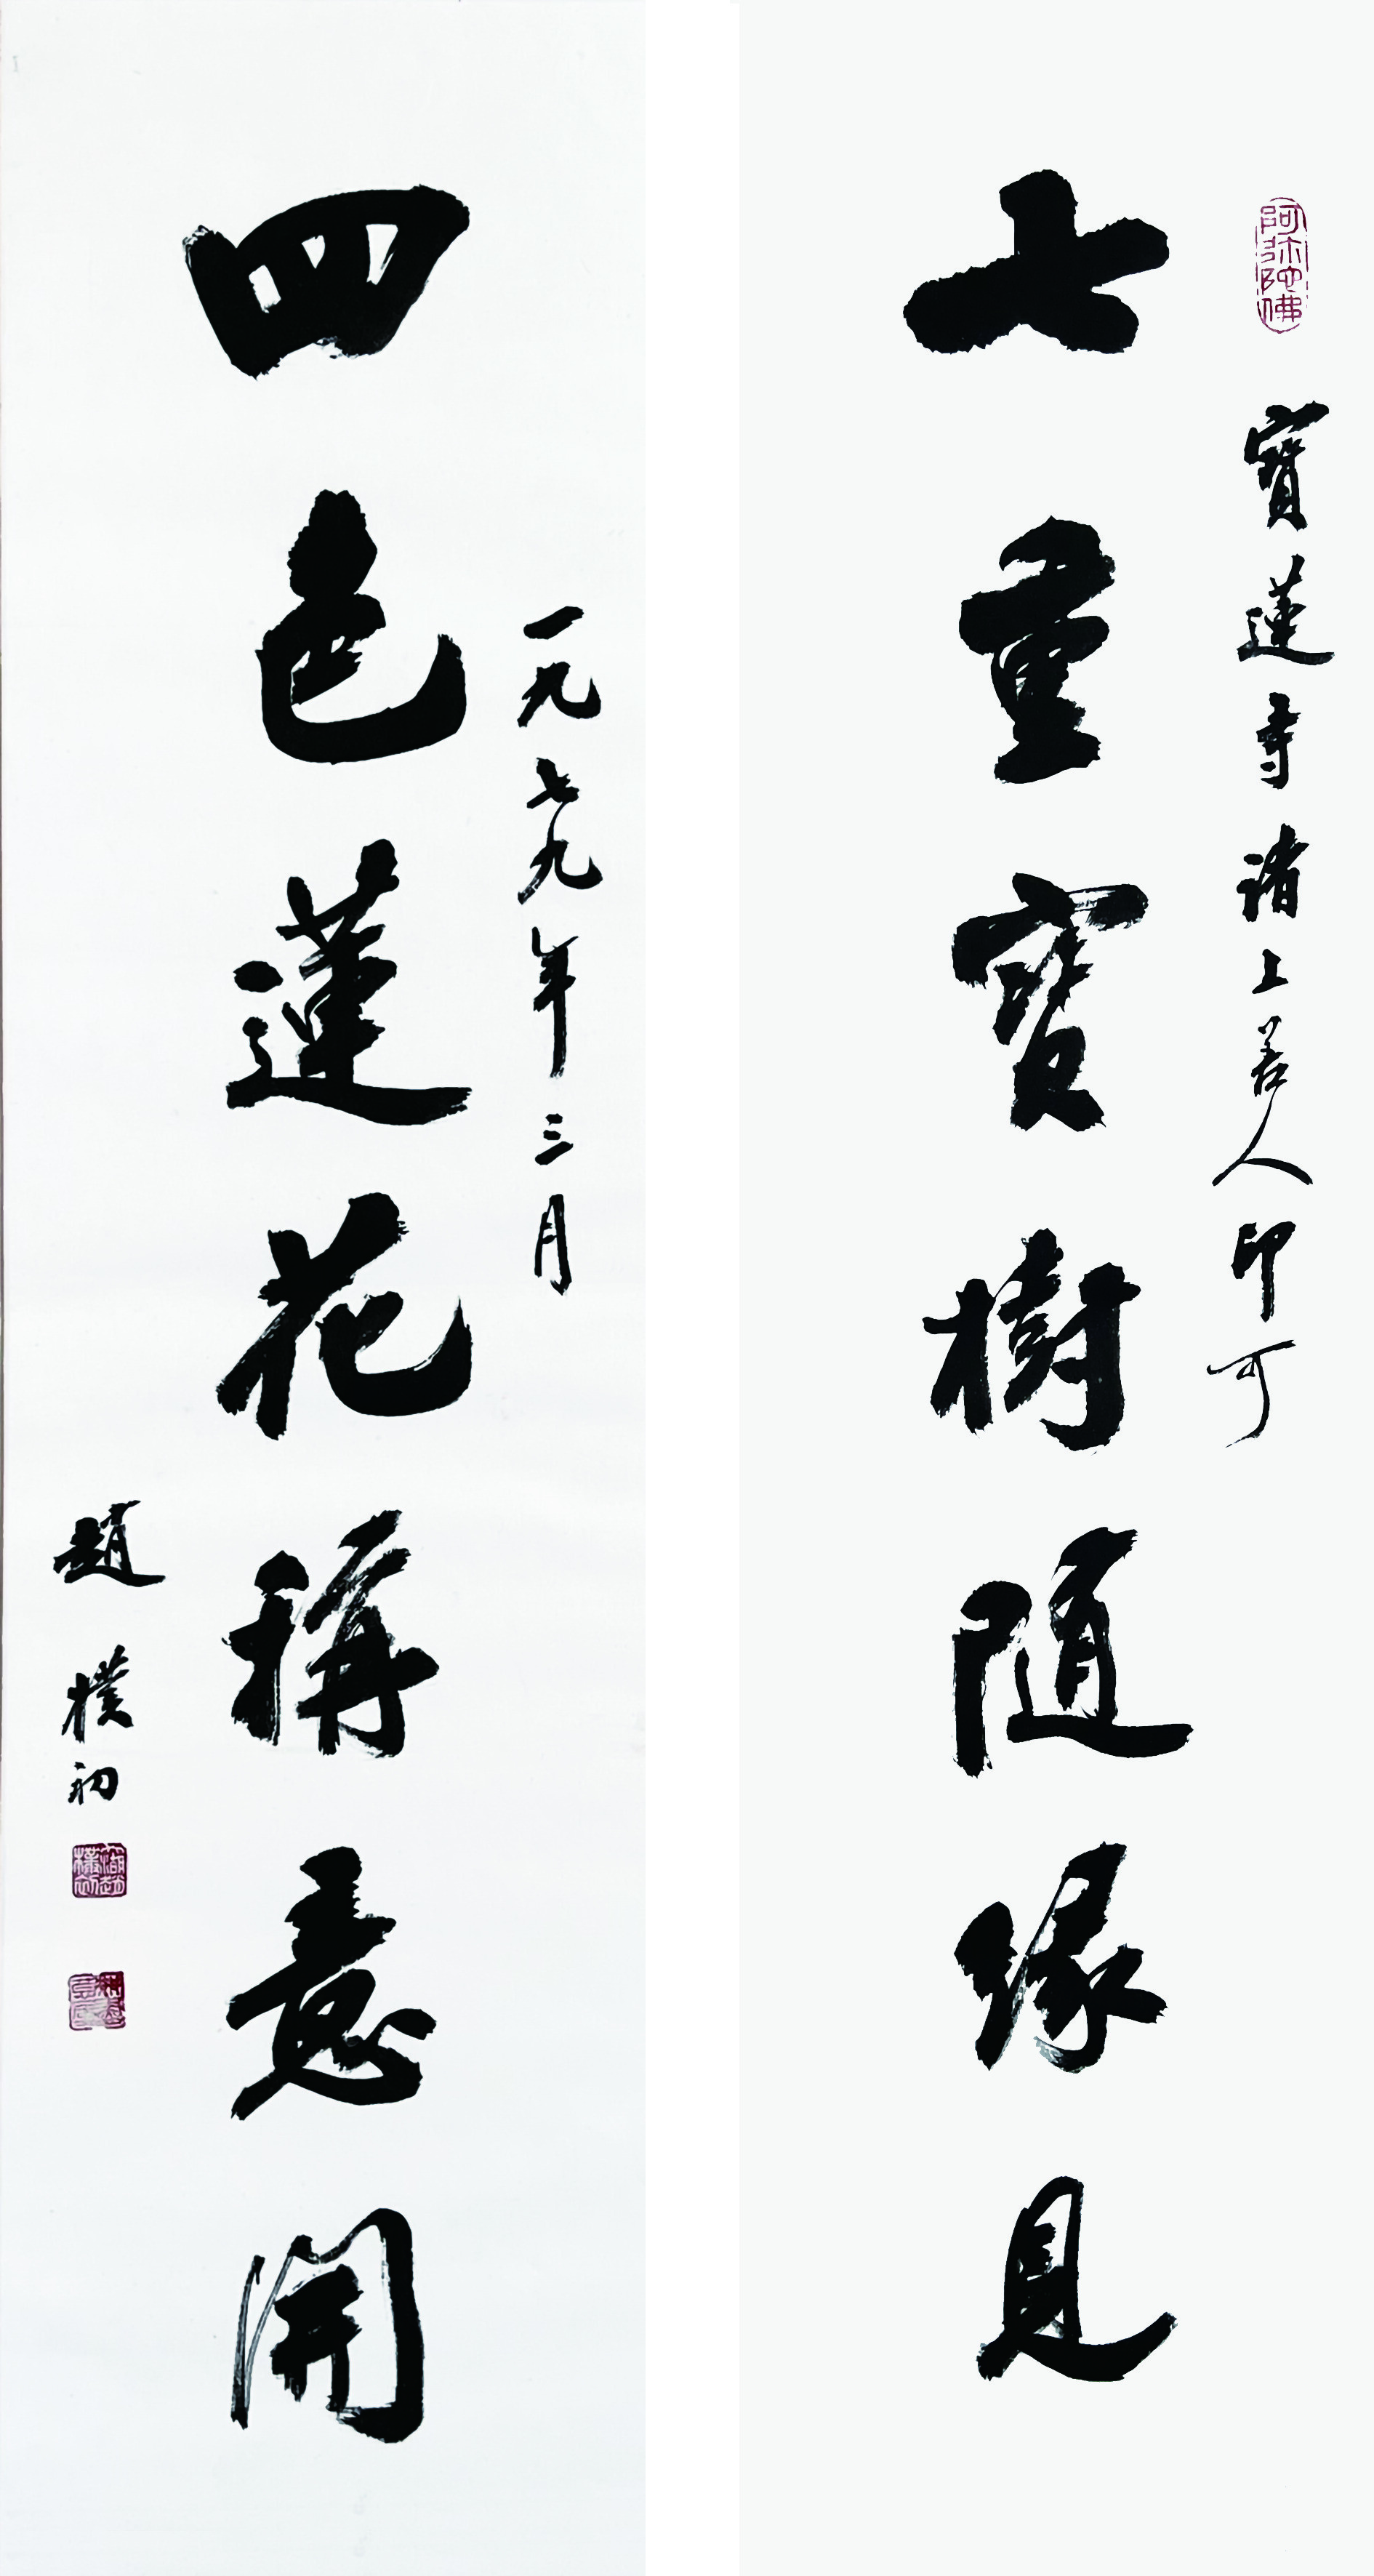 阿弥陀佛
寶蓮寺諸上善人印可
七重寶樹隨緣見
一九七九年三月
四色蓮花稱意開
趙樸初